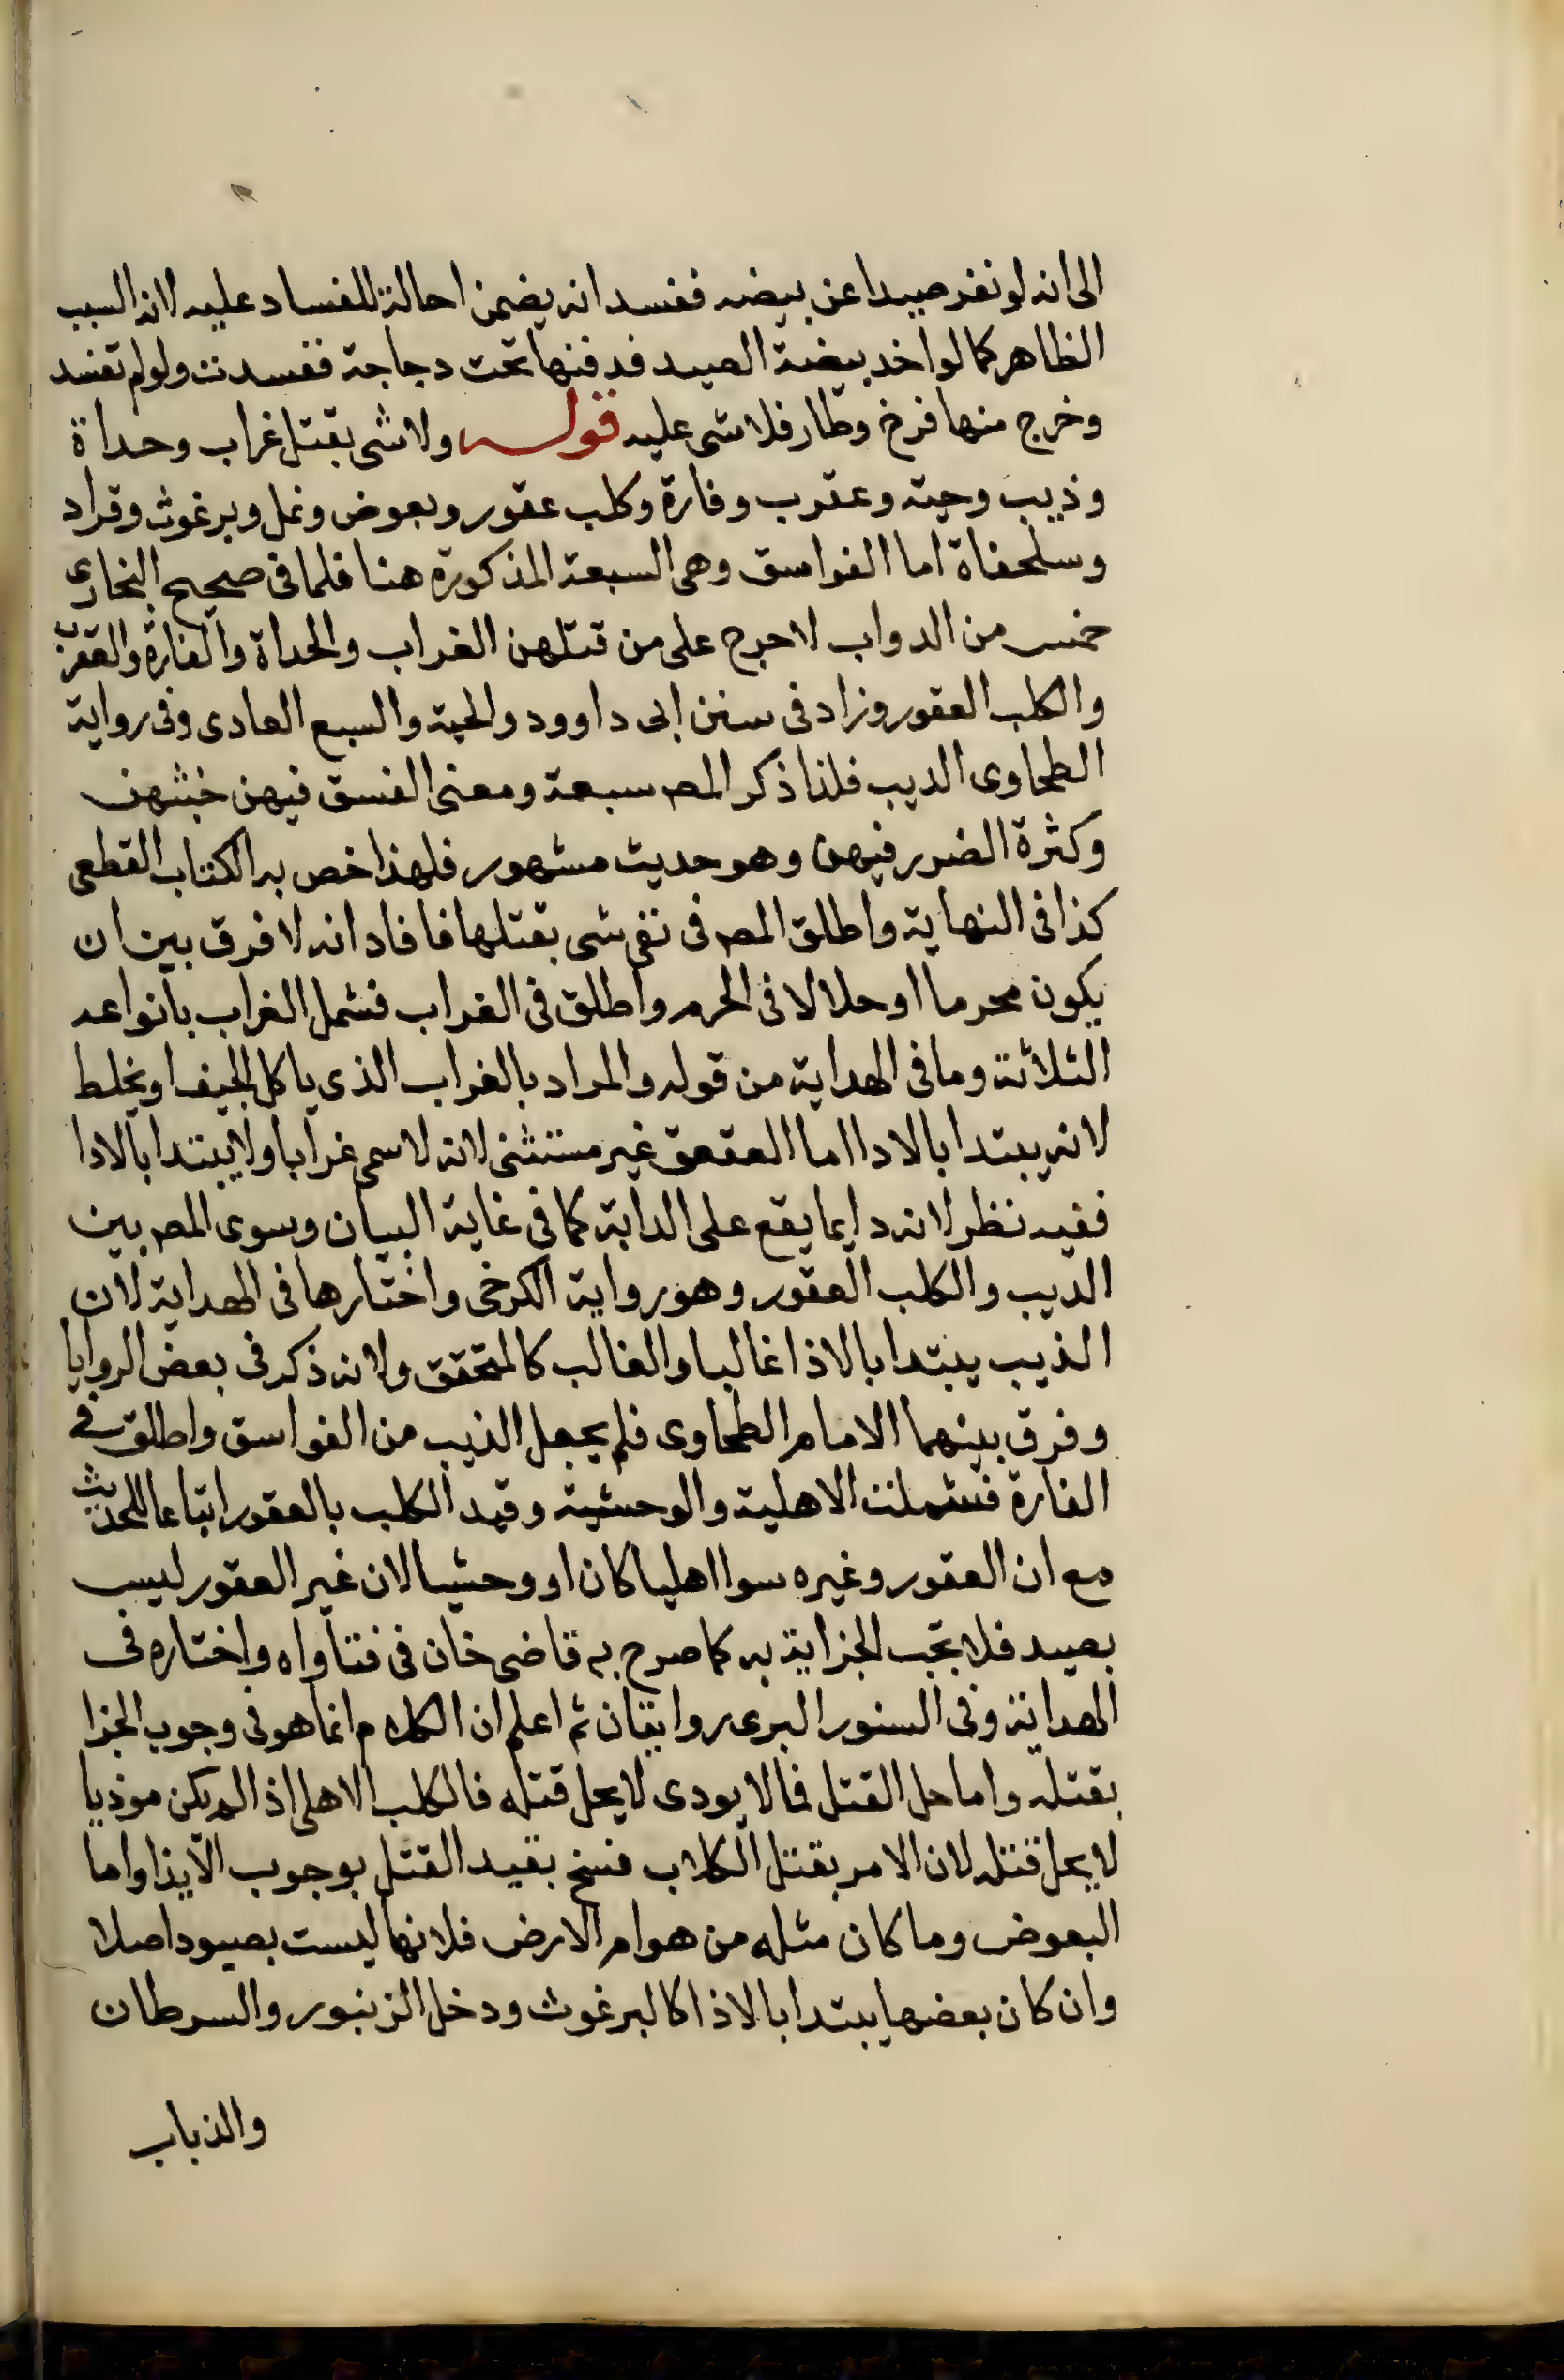 الى انه لو نفر صيدا عن بيضه ففسد انه يضمن احالة للفساد عليه لانه السبب
الظاهر كما لو اخد بيضة الصيد فدفنها تحت دجاجة ففسدت ولو لم تفسد
وخرج منها فرخ وطار فلا شى عليه قوله ولا شى بقتل غراب وحداة
وذيب وحية وعقرب وفارة وكلب عقور وبعوض ونمل وبرغوث وقراد
وسلحفاة اما الفواسق وهى السبعة المذكورة هنا فلما فى صحيح البخارى
خمس من الدواب لا حرج على من قتلهن الغراب والحداة والفارة والعقرب
والكلب العقور وزاد فى سنن ابى داوود والحية والسبع العادى وفى رواية
الطحاوى الديب فلذا ذكر المص سبعة ومعنى الفسق فيهن خبثهن
وكثرة الضرر فيهن وهو حديث مشهور فلهذا خص به الكتاب القطعى
كذا فى النهاية واطلق المص فى نفى شى بقتلها فافاد انه لا فرق بين ان
يكون محرما او حلالا فى الحرم واطلق فى الغراب فشمل الغراب بانواعه
الثلاثة وما فى الهداية من قوله والمراد بالغراب الذى ياكل الجيف او يخلط
لانه يبتدا بالادا اما العقعق غير مستثنى لانه لا سمى غرابا ولا يبتدا بالادا
ففيه نظر لانه دايما يقع على الدابة كما فى غاية البيان وسوى المص بين
الديب والكلب العقور وهو رواية الكرخى واختارها فى الهداية لان
الذيب يبتدا بالاذا غالبا والغالب كالمتحقق ولانه ذكر فى بعض الروايا
وفرق بينهما الامام الطحاوى فلم يجعل الذيب من الفواسق واطلق فى
الفارة فشملت الاهلية والوحشية وقيد الكلب بالعقور اتباعا للحديث
مع ان العقور وغيره سوا اهليا كان او وحشيا لان غير العقور ليس
بصيد فلا تجب الجزاية به كما صرح به قاضى خان فى فتاواه واختاره فى
الهداية وفى السنور البرى روايتان ثم اعلم ان الكلام انما هو فى وجوب الجزا
بقتله واما حل القتل فما لا يودى لا يحل قتله فالكلب الاهلى اذا لم يكن موذيا
لا يحل قتله لان الامر بقتل الكلاب فنسخ بقيد القتل بوجوب الايذا واما
البعوض وما كان مثله من هوام الارض فلانها ليست بصيود اصلا
وان كان بعضها يبتدا بالاذا كالبرغوث ودخل الزنبور والسرطان
والذباب